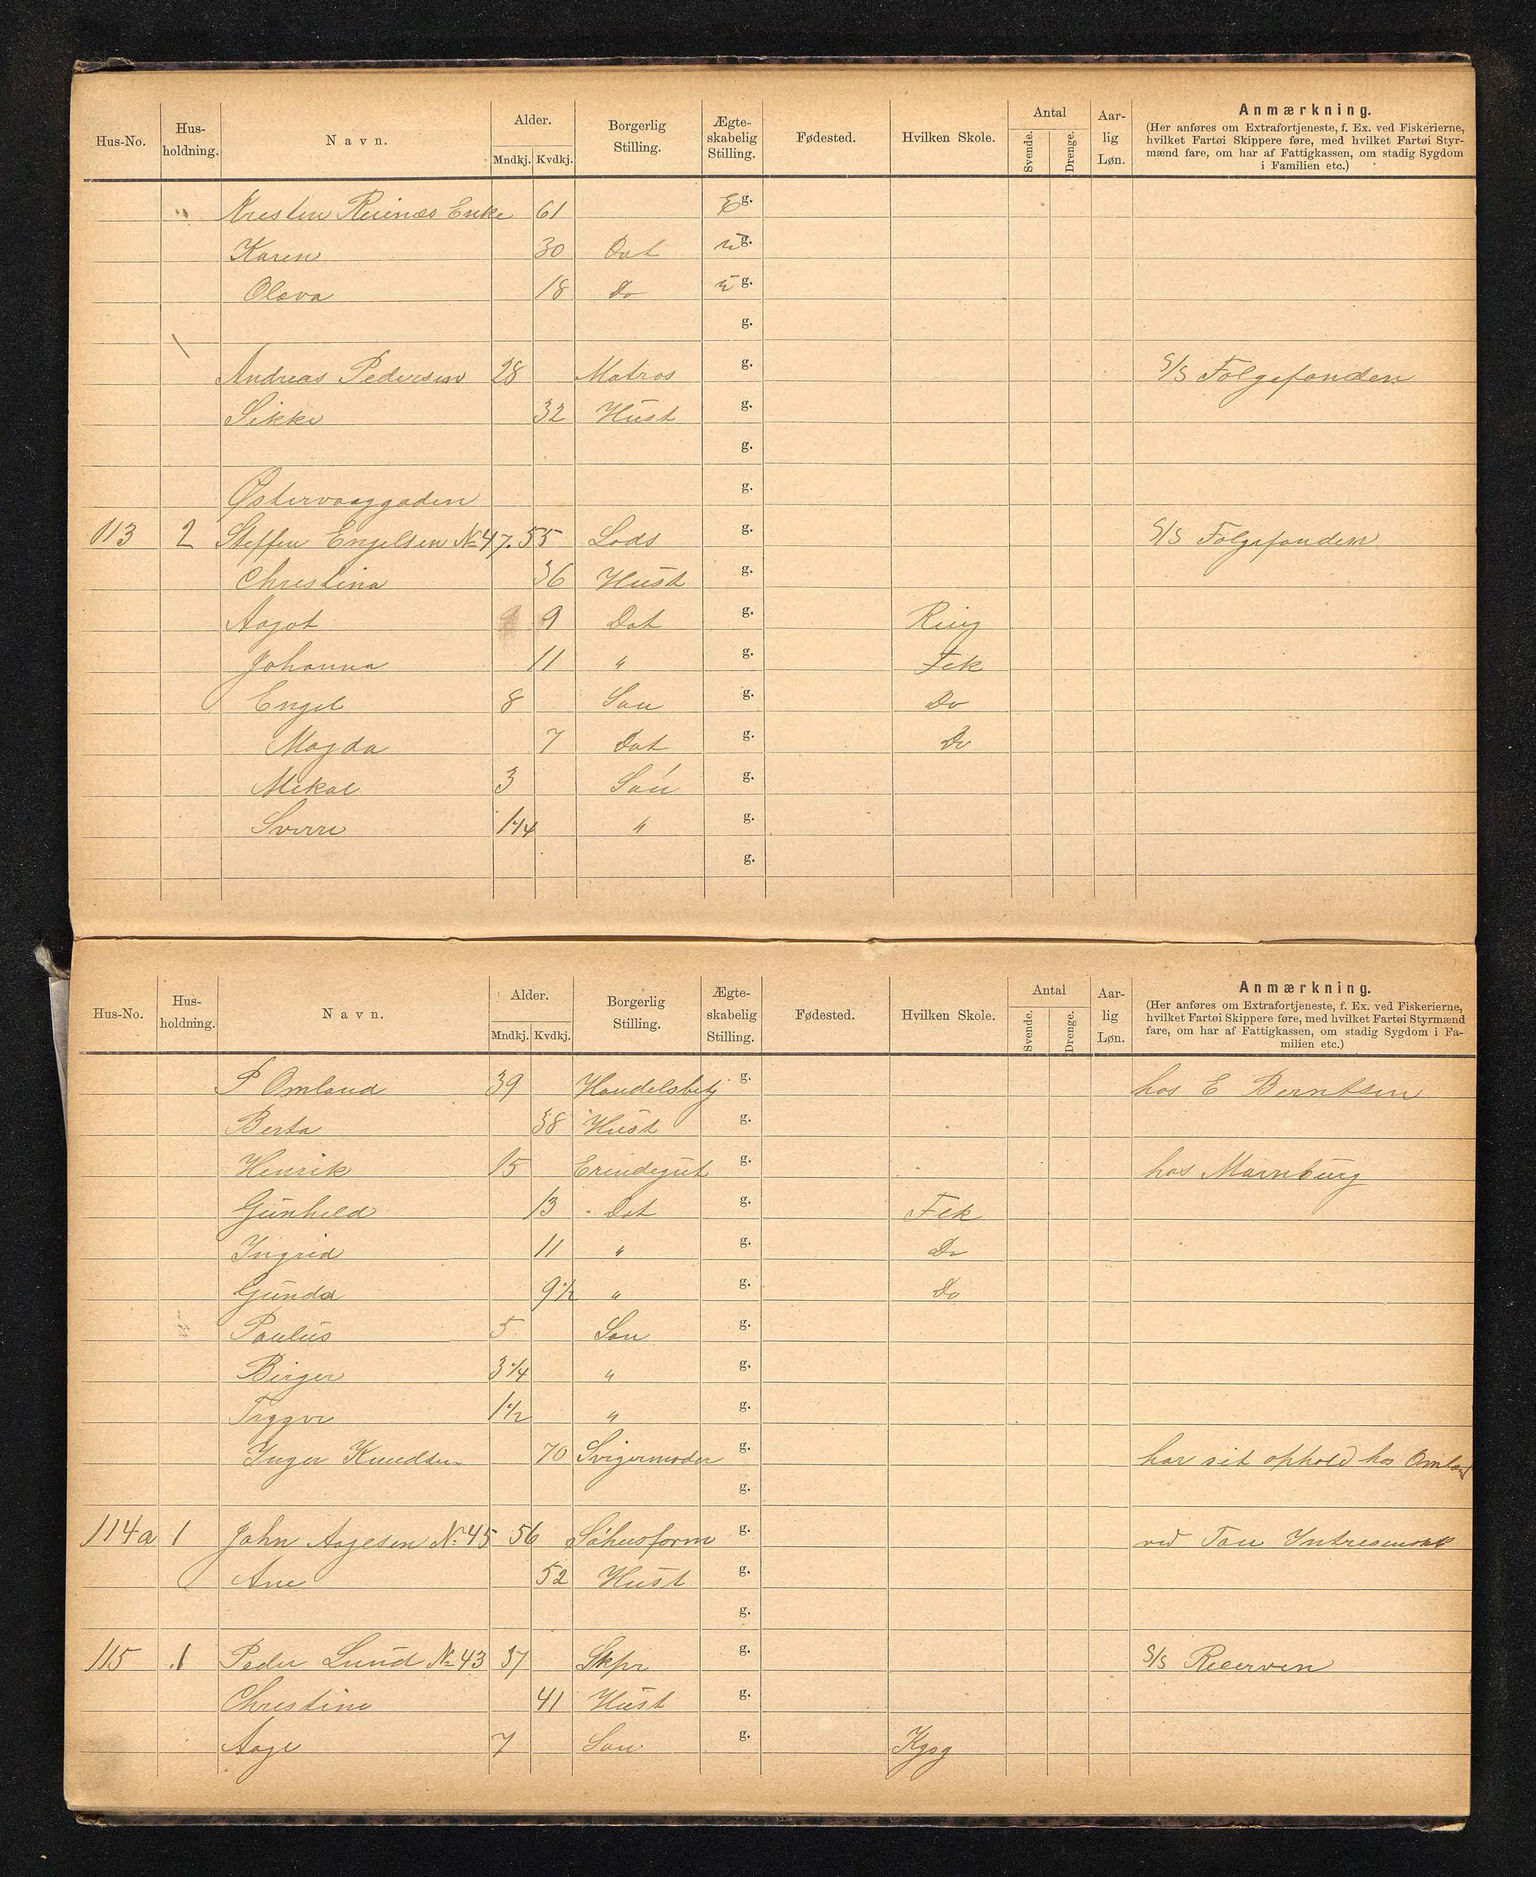 Hus-No. Hus-holdning. Navn. Alder. Mndkj. Kvdkj. Borgerlig Stilling. Ægte-skabelig Stilling. Fødested. Hvilken Skole. Antal Svende. Drenge. Aar-lig Løn. Anmærkning.
(Her anføres om Extrafortjeneste, f. Ex. ved Fiskerierne,
hvilket Fartøi Skippere føre, med hvilket Fartøi Styr-
mænd fare, om har af Fattigkassen, om stadig Sygdom
i Familien etc.)
Kresten Enke 61 E g.
Karen 30 Dat u g.
Olava 18 Do u g.
g.
Andreas Pedersen 28 Matros g. S/S Folgefonden
Sikke 32 Hust g.
g.
Østervaaggaden g.
113 2 Steffen Engelsen No 47. 55 Lods g. S/S Folgefonden
Christina 36 Hust g.
Aagot 9 Dat g.
Johanna 11 " g. Fck
Engel 8 Søn g. Do
Magda 7 Dat g. Do
Mikal 3 Søn g.
Sverre 1 1/4 " g.
g.
Hus-No. Hus-holdning. Navn. Alder. Mndkj. Kvdkj. Borgerlig Stilling. Ægte-skabelig Stilling. Fødested. Hvilken Skole. Antal Svende. Drenge. Aar-lig Løn. Anmærkning.
(Her anføres om Extrafortjeneste, f. Ex. ved Fiskerierne,
hvilket Fartøi Skippere føre, med hvilket Fartøi Styrmænd
fare, om har af Fattigkassen, om stadig Sygdom i Fa-
milien etc.)
P Omland 39 Handelsbetj g. hos E Berntsen
Berta 38 Hust g.
Henrik 15 Erindegut g. hos Marnburg
Gunhild 13 Dat g. Fck
Ingrid 11 " g. Do
Gunda 9 1/2 " g. Do
Paulus 5 Søn g.
Birger 3 1/4 " g.
Trygve 1 1/2 " g.
Inger Knudsen 70 Svigermoder g. har sit ophold hos Omland
g.
114a 1 John Aagesen No 45 56 Søhusform g. ved Tou
Ane 52 Hust g.
g.
115 1 Peder Lund No 43 37 Skpr g. S/S
Christine 41 Hust g.
Aage 7 Søn g. Kgsg